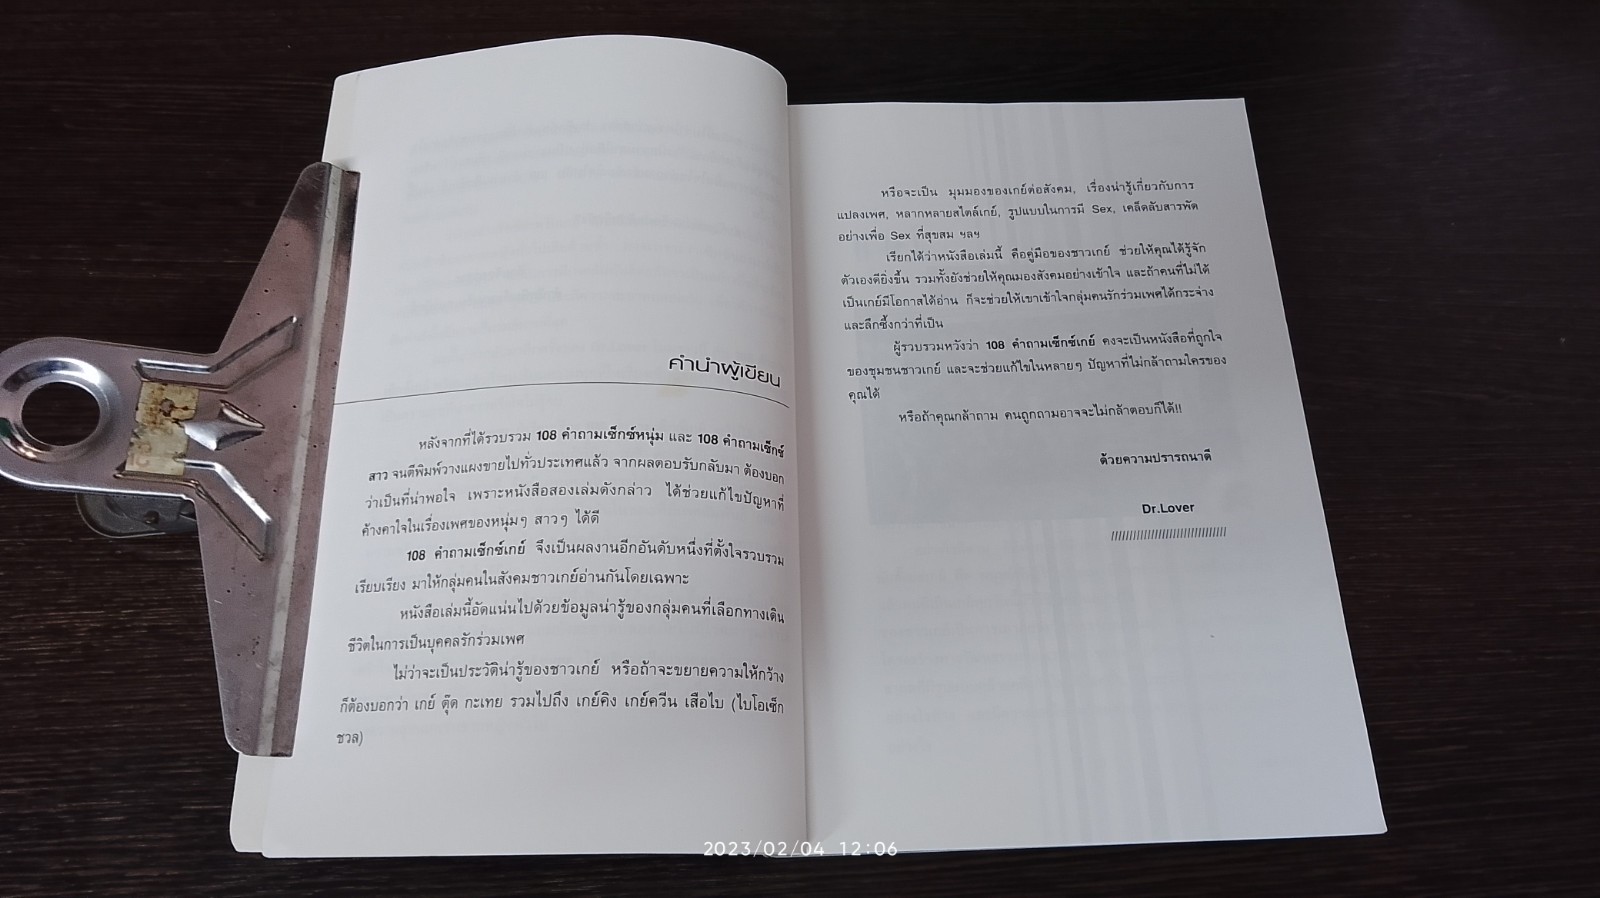 คำนำผู้เขียน
หลังจากที่ได้รวบรวม 108 คำถามเซ็กซ์หนุ่ม และ 108 คำถามเซ็กซ์
สาว จนตีพิมพ์วางแผงขายไปทั่วประเทศแล้ว จากผลตอบรับกลับมา ต้องบอก
ว่าเป็นที่น่าพอใจ เพราะหนังสือสองเล่มดังกล่าว ได้ช่วยแก้ไขปัญหาที่
ค้างคาใจในเรื่องเพศของหนุ่มๆ สาวๆ ได้ดี
108 คำถามเซ็กซ์เกย์ จึงเป็นผลงานอีกอันดับหนึ่งที่ตั้งใจรวบรวม
เรียบเรียง มาให้กลุ่มคนในสังคมชาวเกย์อ่านกันโดยเฉพาะ
หนังสือเล่มนี้อัดแน่นไปด้วยข้อมูลน่ารู้ของกลุ่มคนที่เลือกทางเดิน
ชีวิตในการเป็นบุคคลรักร่วมเพศ
ไม่ว่าจะเป็นประวัติน่ารู้ของชาวเกย์ หรือถ้าจะขยายความให้กว้าง
ก็ต้องบอกว่า เกย์ ตุ๊ด กะเทย รวมไปถึง เกย์คิง เกย์ควีน เสือไบ (ไบโอเซ็ก
ชวล)
หรือจะเป็น มุมมองของเกย์ต่อสังคม, เรื่องน่ารู้เกี่ยวกับการ
แปลงเพศ, หลากหลายสไตล์เกย์, รูปแบบในการมี Sex, เคล็ดลับสารพัด
อย่างเพื่อ Sex ที่สุขสม ฯลฯ
เรียกได้ว่าหนังสือเล่มนี้ คือคู่มือของชาวเกย์ ช่วยให้คุณได้รู้จัก
ตัวเองดียิ่งขึ้น รวมทั้งยังช่วยให้คุณมองสังคมอย่างเข้าใจ และถ้าคนที่ไม่ได้
เป็นเกย์มีโอกาสได้อ่าน ก็จะช่วยให้เขาเข้าใจกลุ่มคนรักร่วมเพศได้กระจ่าง
และลึกซึ้งกว่าที่เป็น
ผู้รวบรวมหวังว่า 108 คำถามเซ็กซ์เกย์ คงจะเป็นหนังสือที่ถูกใจ
ของชุมชนชาวเกย์ และจะช่วยแก้ไขในหลายๆ ปัญหาที่ไม่กล้าถามใครของ
คุณได้
หรือถ้าคุณกล้าถาม คนถูกถามอาจจะไม่กล้าตอบก็ได้!!
ด้วยความปรารถนาดี
Dr.Lover
2023/02/04 12:06